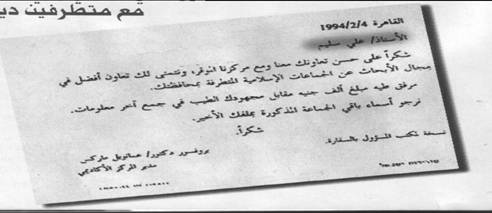 قمع متطرفين دي
القاهرة 1994/2/4
الأستاذ/ علي سليم
شكراً على حسن تعاونك معنا ومع مركزنا الموقر، ونتمنى لك تعاون أفضل في
مجال الأبحاث عن الجماعات الإسلامية المتطرفة بمحافظتك.
مرفق طيه مبلغ ألف جنيه مقابل مجهودك الطيب في جمع آخر معلومات.
نرجو أسماء باقي الجماعة المذكورة بملفك الأخير.
شكراً.
نسخة لكتب المسؤول بالسفارة.
بروفسور دكتور/ عمانويل ماركس
مدير المركز الأكاديمي